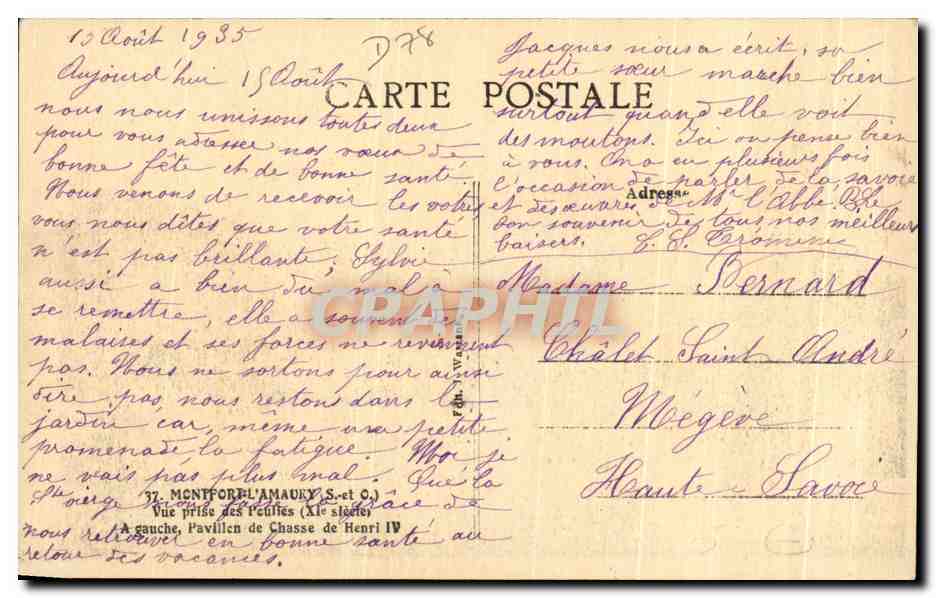 15 Août 1935
D78
Aujourd'hui 15 Août
nous nous unissons toutes deux
pour vous adresser nos vœux de
bonne fête et de bonne santé.
Nous venons de recevoir les votres
vous nous dîtes que votre santé
n'est pas brillante, Sylvie
aussi a bien du mal à
se remettre, elle a souvent des
malaises et ses forces ne reviennent
pas. Nous ne sortons pour ainsi
dire pas nous restons dans le
jardin car, même une petite
promenade la fatigue. Moi je
ne vais pas plus mal. Que la
Ste Vierge nous fasse la grâce de
nous retrouver en bonne santé au
retour des vacances.
CARTE POSTALE
Jacques nous a écrit, sa
petite sœur marche bien
surtout quand elle voit
des moutons. Ici on pense bien
à vous. On a eu plusieurs fois
l'occasion de parler de la Savoie
et des œuvres de Mr l'Abbé.
bon souvenir de tous nos meilleurs
baisers.
Adresse
Madame Bernard
Châlet Saint André
Mégève
Haute Savoie
37. MONTFORT-L'AMAURY (S.-et O.)
Vue prise des (XIe siècle)
A gauche, Pavillon de Chasse de Henri IV
CRAPHIL